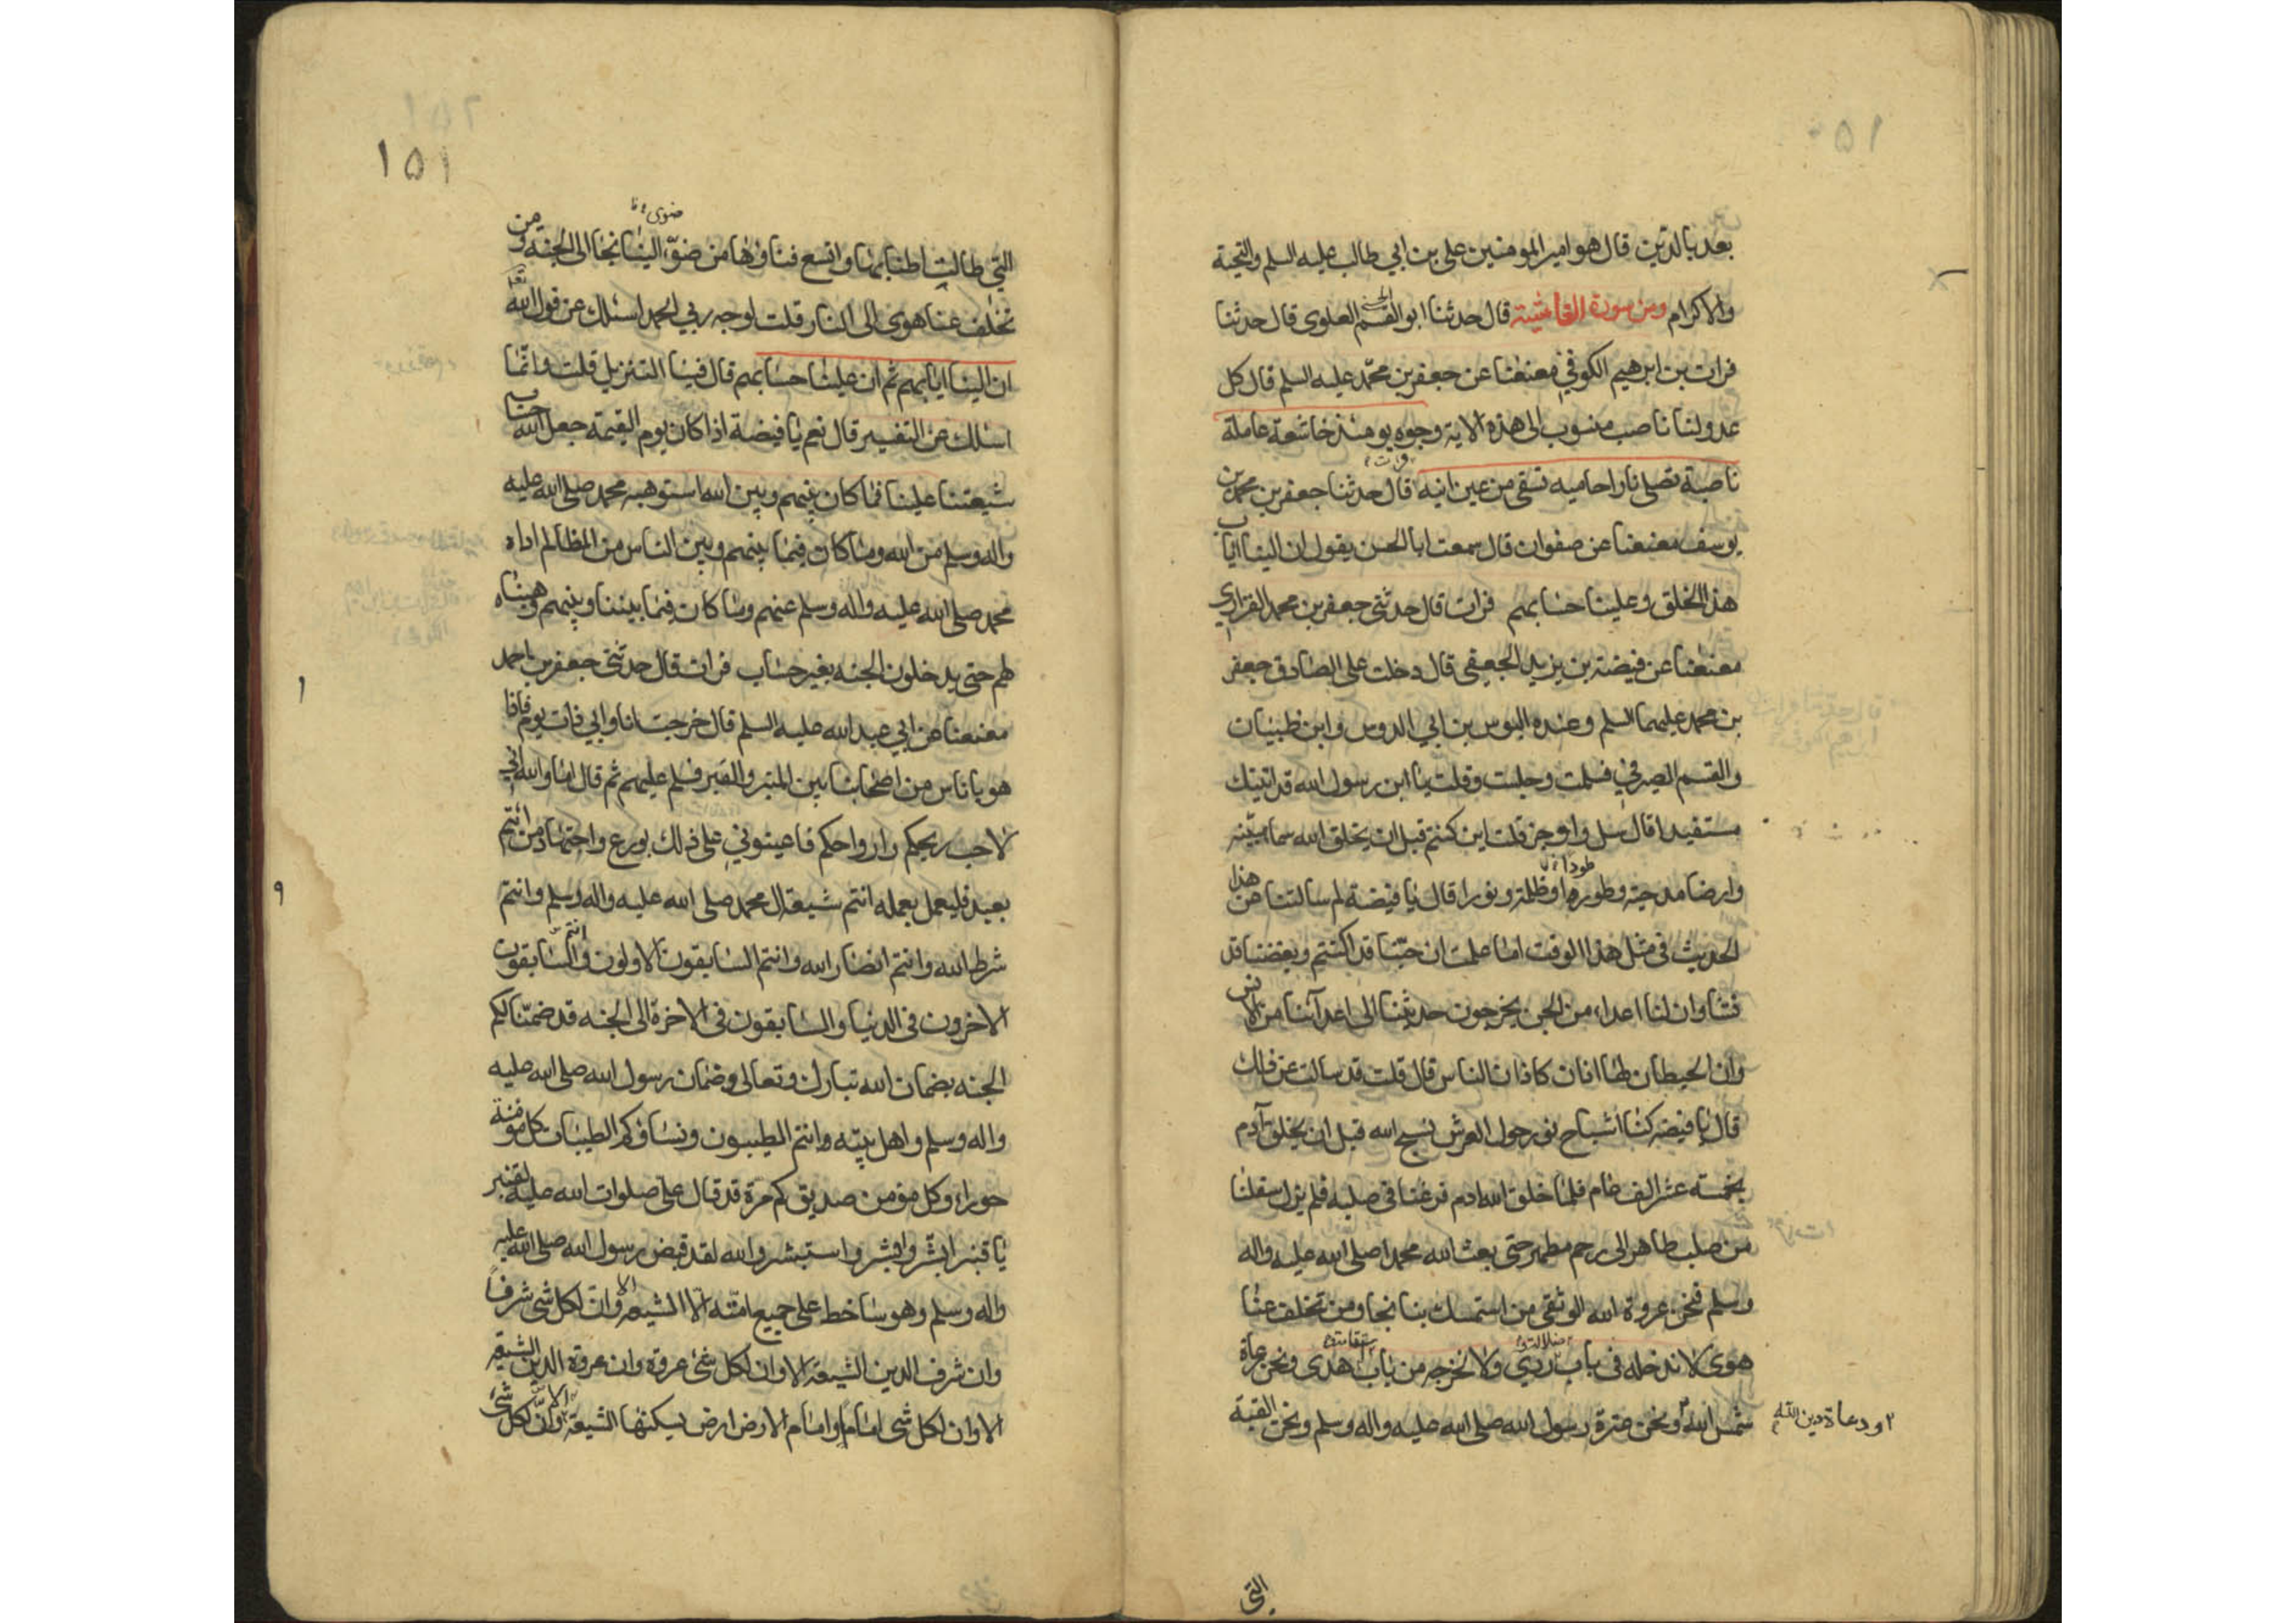 بعد بالدين قال هو امير المومنين على بن ابي طالب عليه السلم والتحية
والاكرام ومن سورة الغاشية قال حدثنا ابو القسم العلوى قال حدثنا
فرات بن ابرهيم الكوفي معنعنا عن جعفر بن محمد عليه السلم قال كل
عدو لنا ناصب منسوب الى هذه الاية وجوه يومئذ خاشعة عاملة
ناصبة تصلى نارا حاميه تسقى من عين انيه قال حدثنا جعفر بن محمد بن
يوسف معنعنا عن صفوان قال سمعت ابا الحسن يقول ان الينا اياب
هذا الخلق وعلينا حسابهم فرات قال حدثنى جعفر بن محمد الفزارى
معنعنا عن قبيضة بن يزيد الجعفى قال دخلت على الصادق جعفر
بن محمد عليهما السلم وعنده البوس بن ابي الدوس وابن ظبيان
والقسم الصيرفي فسلمت وجلست وقلت يا ابن رسول الله قد اتيتك
مستفيدا قال سل واوجز قلت اين كنتم قبل ان يخلق الله سماء مبنيه
وارضا مدحية وطورها او ظلمة ونورا قال يا قبيضة لم سالتنا عن هذا
الحديث فى مثل هذا الوقت اما علمت ان حبنا قد اكتتم وبغضنا قد
فشا وان لنا اعداء من الجن يخرجون حديثنا الى اعدائنا من الانس
وان الحيطان لها اذان كاذان الناس قال قلت قد سالت عن ذلك
قال يا قبيضه كنا اشباح نور حول العرش نسبح الله قبل ان يخلق آدم
بخمسة عشر الف عام فلما خلق الله ادم فرغنا فى صلبه فلم يزل ينقلنا
من صلب طاهر الى رحم مطهر حتى بعث الله محمدا صلى الله عليه واله
وسلم فنحن عروة الله الوثقى من استمسك بنا نجا ومن تخلف عنا
هوى لا ندخله فى باب ردي ولا نخرجه من باب هدى ونحن رعاة
شمس الله ونحن عترة رسول الله صلى الله عليه واله وسلم ونحن القبة
او دعاة دين الله
التى
١٥١
التي طالت اطنابها واتسع فناؤها من ضوى الينا نجا الى الجنه ومن
تخلف عنا هوى الى النار قلت لوجه ربي الحمد اسئلك عن قول الله تعا
ان الينا ايابهم ثم ان علينا حسابهم قال فينا التنزيل قلت وانما
اسئلك عن التفسير قال نعم يا قبيضة اذا كان يوم القيمة جعل الله حساب
شيعتنا علينا فما كان بينهم وبين الله استوهبه محمد صلى الله عليه
واله وسلم من الله وما كان فيما بينهم وبين الناس من المظالم اداه
محمد صلى الله عليه واله وسلم عنهم وما كان فيما بيننا وبينهم وهبناه
لهم حتى يدخلون الجنه بغير حساب فرات قال حدثنى جعفر بن احمد
معنعنا عن ابي عبد الله عليه السلم قال خرجت انا وابي ذات يوم فاذا
هو باناس من اصحابنا بين المنبر والقبر فسلم عليهم ثم قال اما والله انى
لاحب ريحكم وارواحكم فاعينوني على ذلك بورع واجتهاد من ائتم
بعبد فليعمل بعمله انتم شيعة ال محمد صلى الله عليه واله وسلم وانتم
شرط الله وانتم انصار الله وانتم السابقون الاولون والسابقون
الاخرون فى الدنيا والسابقون فى الاخرة الى الجنه قد ضمنا لكم
الجنه بضمان الله تبارك وتعالى وضمان رسول الله صلى الله عليه
واله وسلم واهل بيته وانتم الطيبون ونساؤكم الطيبات كل مؤمنة
حوراء وكل مؤمن صديق كم مرة قد قال على صلوات الله عليه لقنبر
يا قنبر ابشر وبشر واستبشر والله لقد قبض رسول الله صلى الله عليه
واله وسلم وهو ساخط على جميع امته الا الشيعه الا وان لكل شى شرفا
وان شرف الدين الشيعة الا وان لكل شئ عروة وان عروة الدين الشيعه
الا وان لكل شى امام وامام الارض ارض يسكنها الشيعة الا وان لكل شى